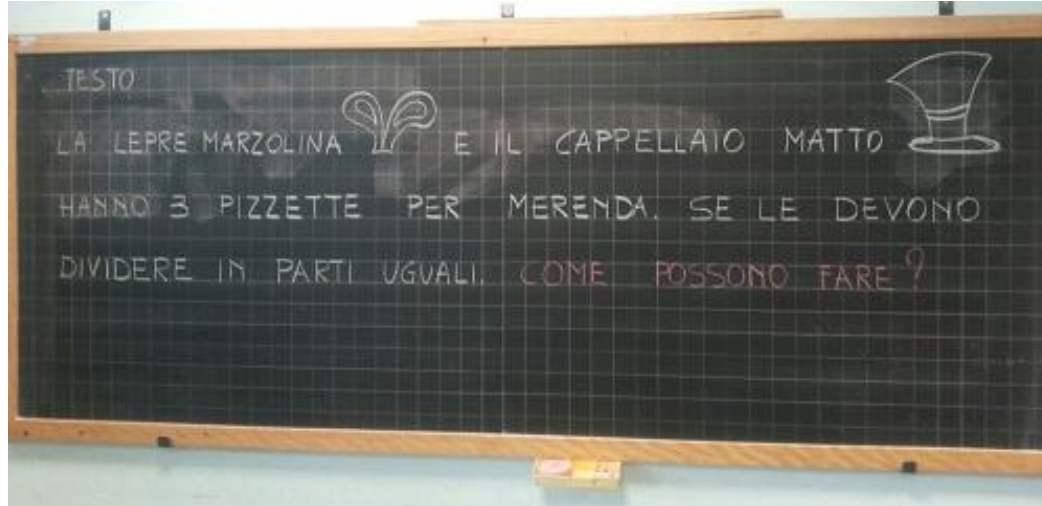 TESTO
LA LEPRE MARZOLINA E IL CAPPELLAIO MATTO
HANNO 3 PIZZETTE PER MERENDA. SE LE DEVONO
DIVIDERE IN PARTI UGUALI. COME POSSONO FARE?